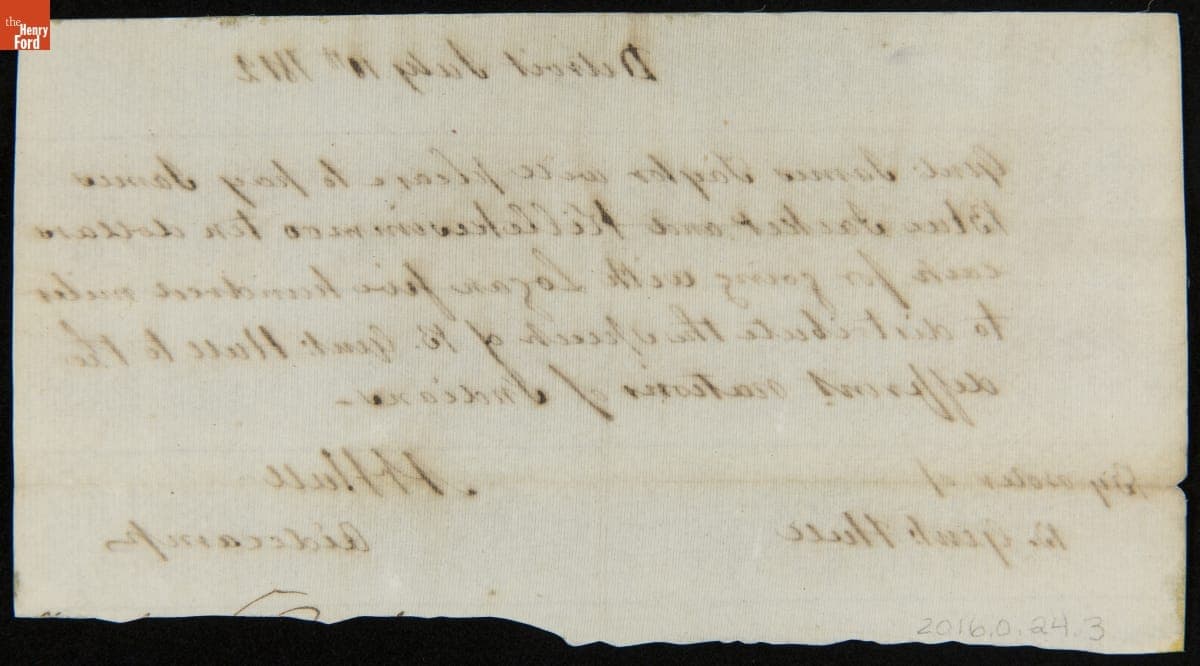 the Henry Ford
Detroit July 10th 1812
Genl. James Taylor will please to pay James
Blue Jacket and Killakewimmoo ten dollars
each for going with Logan five hundred miles
to distribute the speech of B. Genl. Hull to the
different nations of Indians -
By order of
B. Genl. Hull
A F Hull
Aidecamp
2016.0.24.3